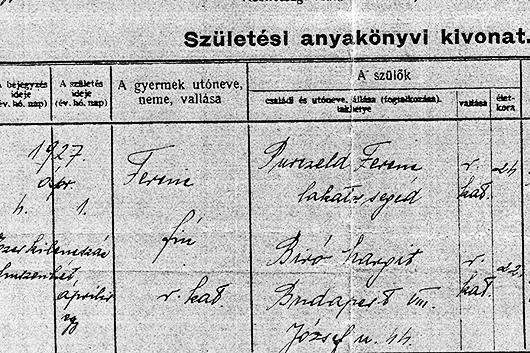 Születési anyakönyvi kivonat.
A bejegyzés ideje (év. hó. nap)
A születés ideje (év. hó. nap)
A gyermek utóneve, neme, vallása
A szülők
családi és utóneve, állása (foglalkozása), lakhelye
vallása
életkora
1927.
ápr.
4. 1.
április
egy
Ferenc
fiú
r. kat.
Purczeld Ferenc
lakatos segéd
r. kat.
24
Biró Margit
Budapest VIII.
József u. 44.
r. kat.
22